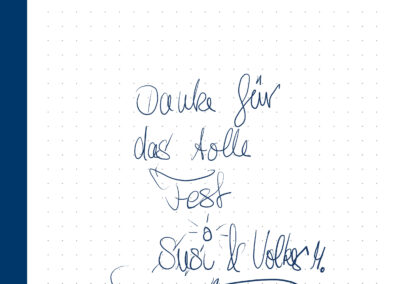 Danke für
das tolle
Fest
Susi & Volker H.